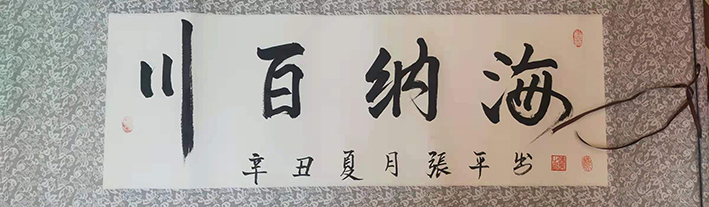 海纳百川
辛丑夏月張平书